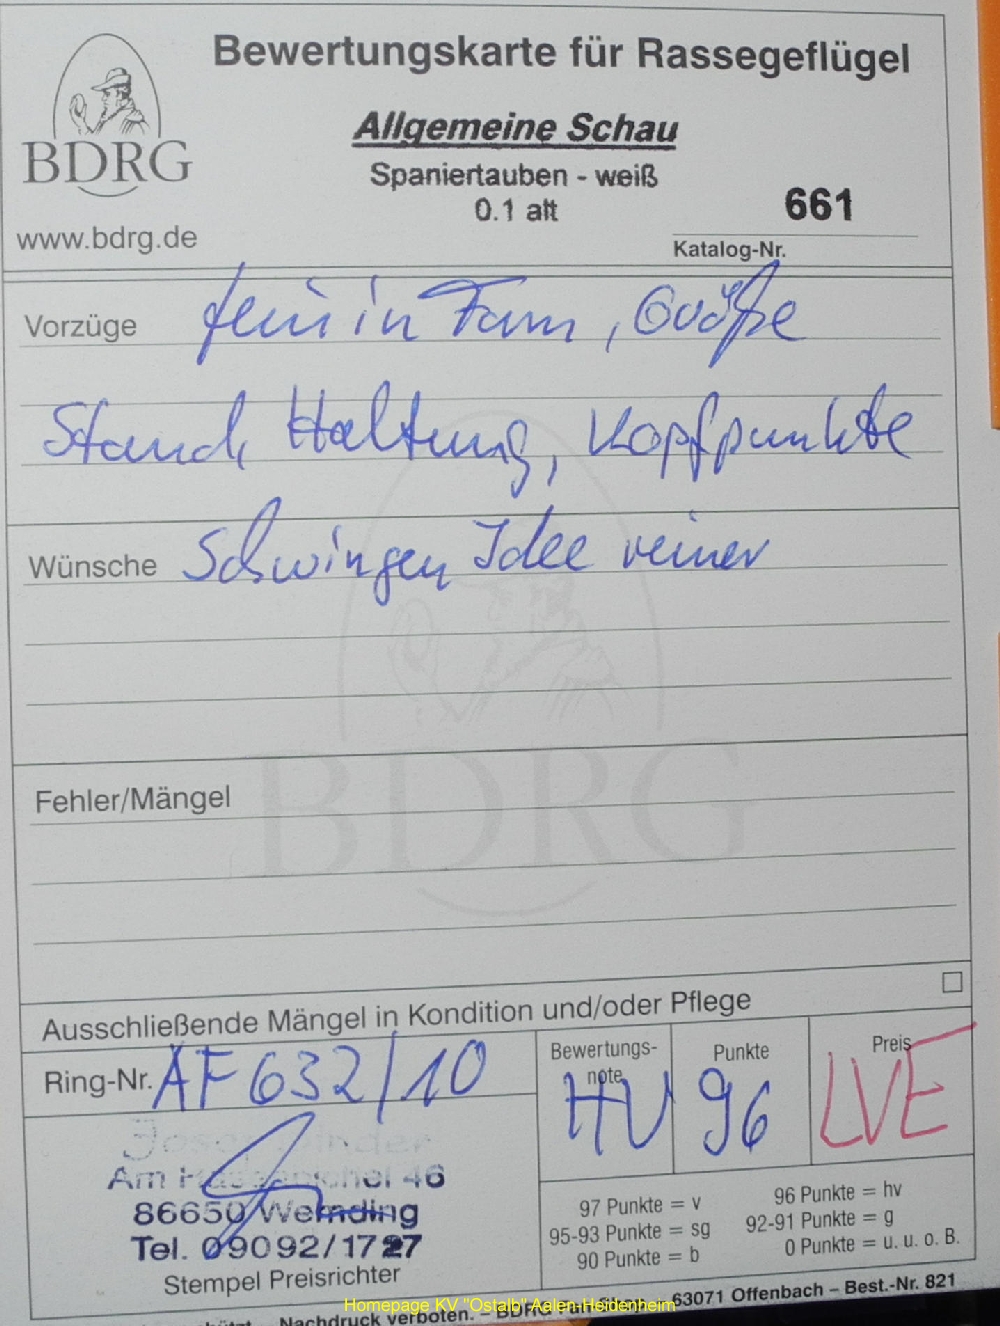 Bewertungskarte für Rassegeflügel
BDRG
www.bdrg.de
Allgemeine Schau
Spaniertauben - weiß
0.1 alt
661
Katalog-Nr.
Vorzüge fein in Form, Größe
Stand, Haltung, Kopfpunkte
Wünsche Schwingen Idee reiner
BDRG
Fehler/Mängel
Ausschließende Mängel in Kondition und/oder Pflege
Ring-Nr. AF 632/10
Bewertungs-
note
HV
Punkte
96
Preis
LVE
Am 46
86650 Wemding
Tel. 09092/1727
Stempel Preisrichter
97 Punkte = v
96 Punkte = hv
95-93 Punkte = sg
92-91 Punkte = g
90 Punkte = b
0 Punkte = u. u. o. B.
Nachdruck verboten. – 63071 Offenbach – Best.-Nr. 821
Homepage KV "Ostalb" Aalen-Heidenheim